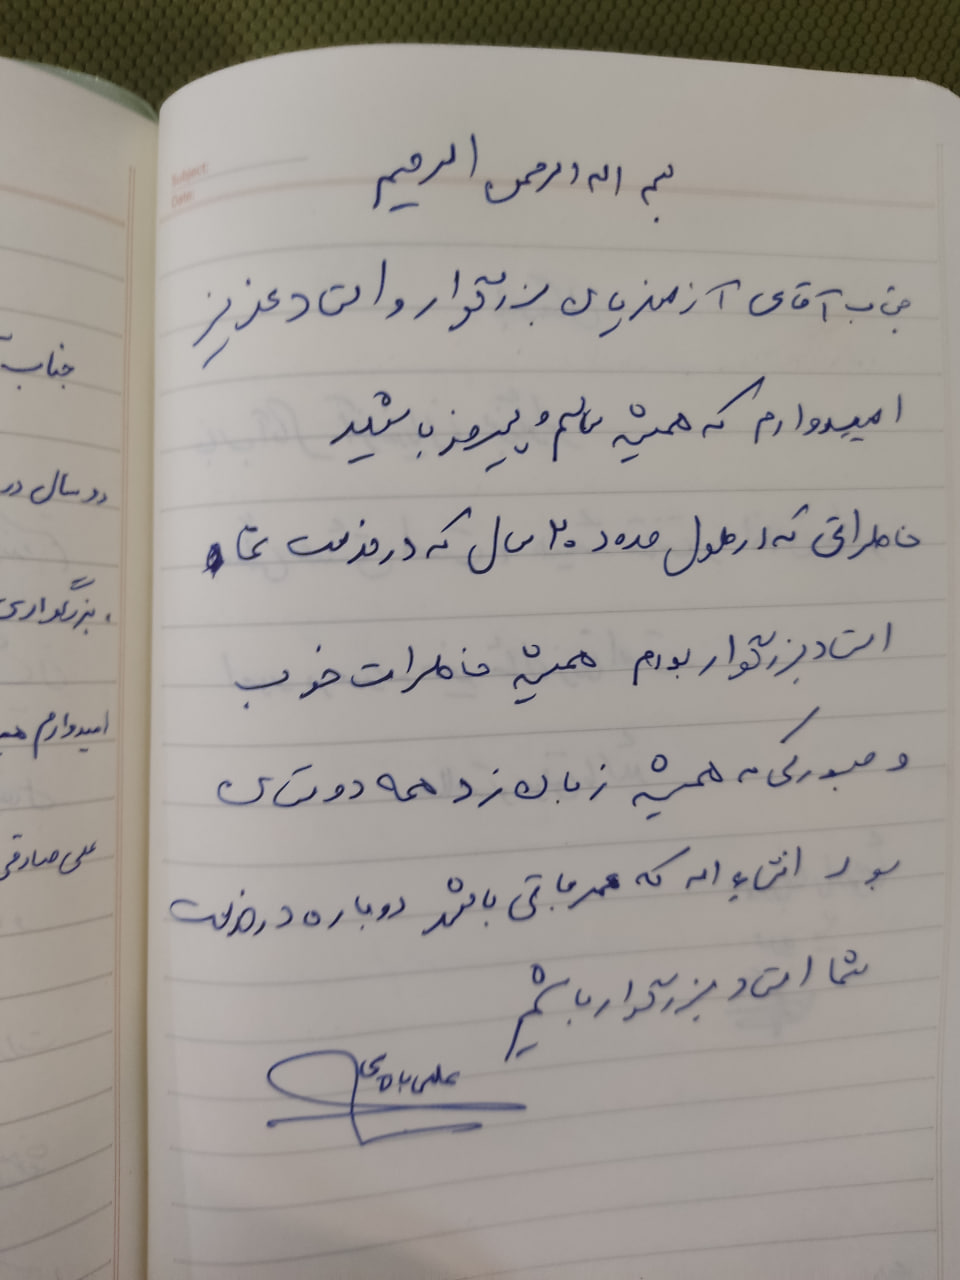 Subject:
Date:
بسم الله الرحمن الرحیم
جناب آقای بزرگوار و استاد عزیز
امیدوارم که همیشه سالم و پیروز باشید
خاطراتی که در طول حدود ۲۰ سال که در خدمت شما
استاد بزرگوار بودم همیشه خاطرات خوب
و صبوری که همیشه زبان زد همه دوستان
بود انشاء الله که عمر باقی باشد دوباره در خدمت
شما استاد بزرگوار باشم
علی
جناب
دو سال در
بزرگواری
امیدوارم
علی صادقی